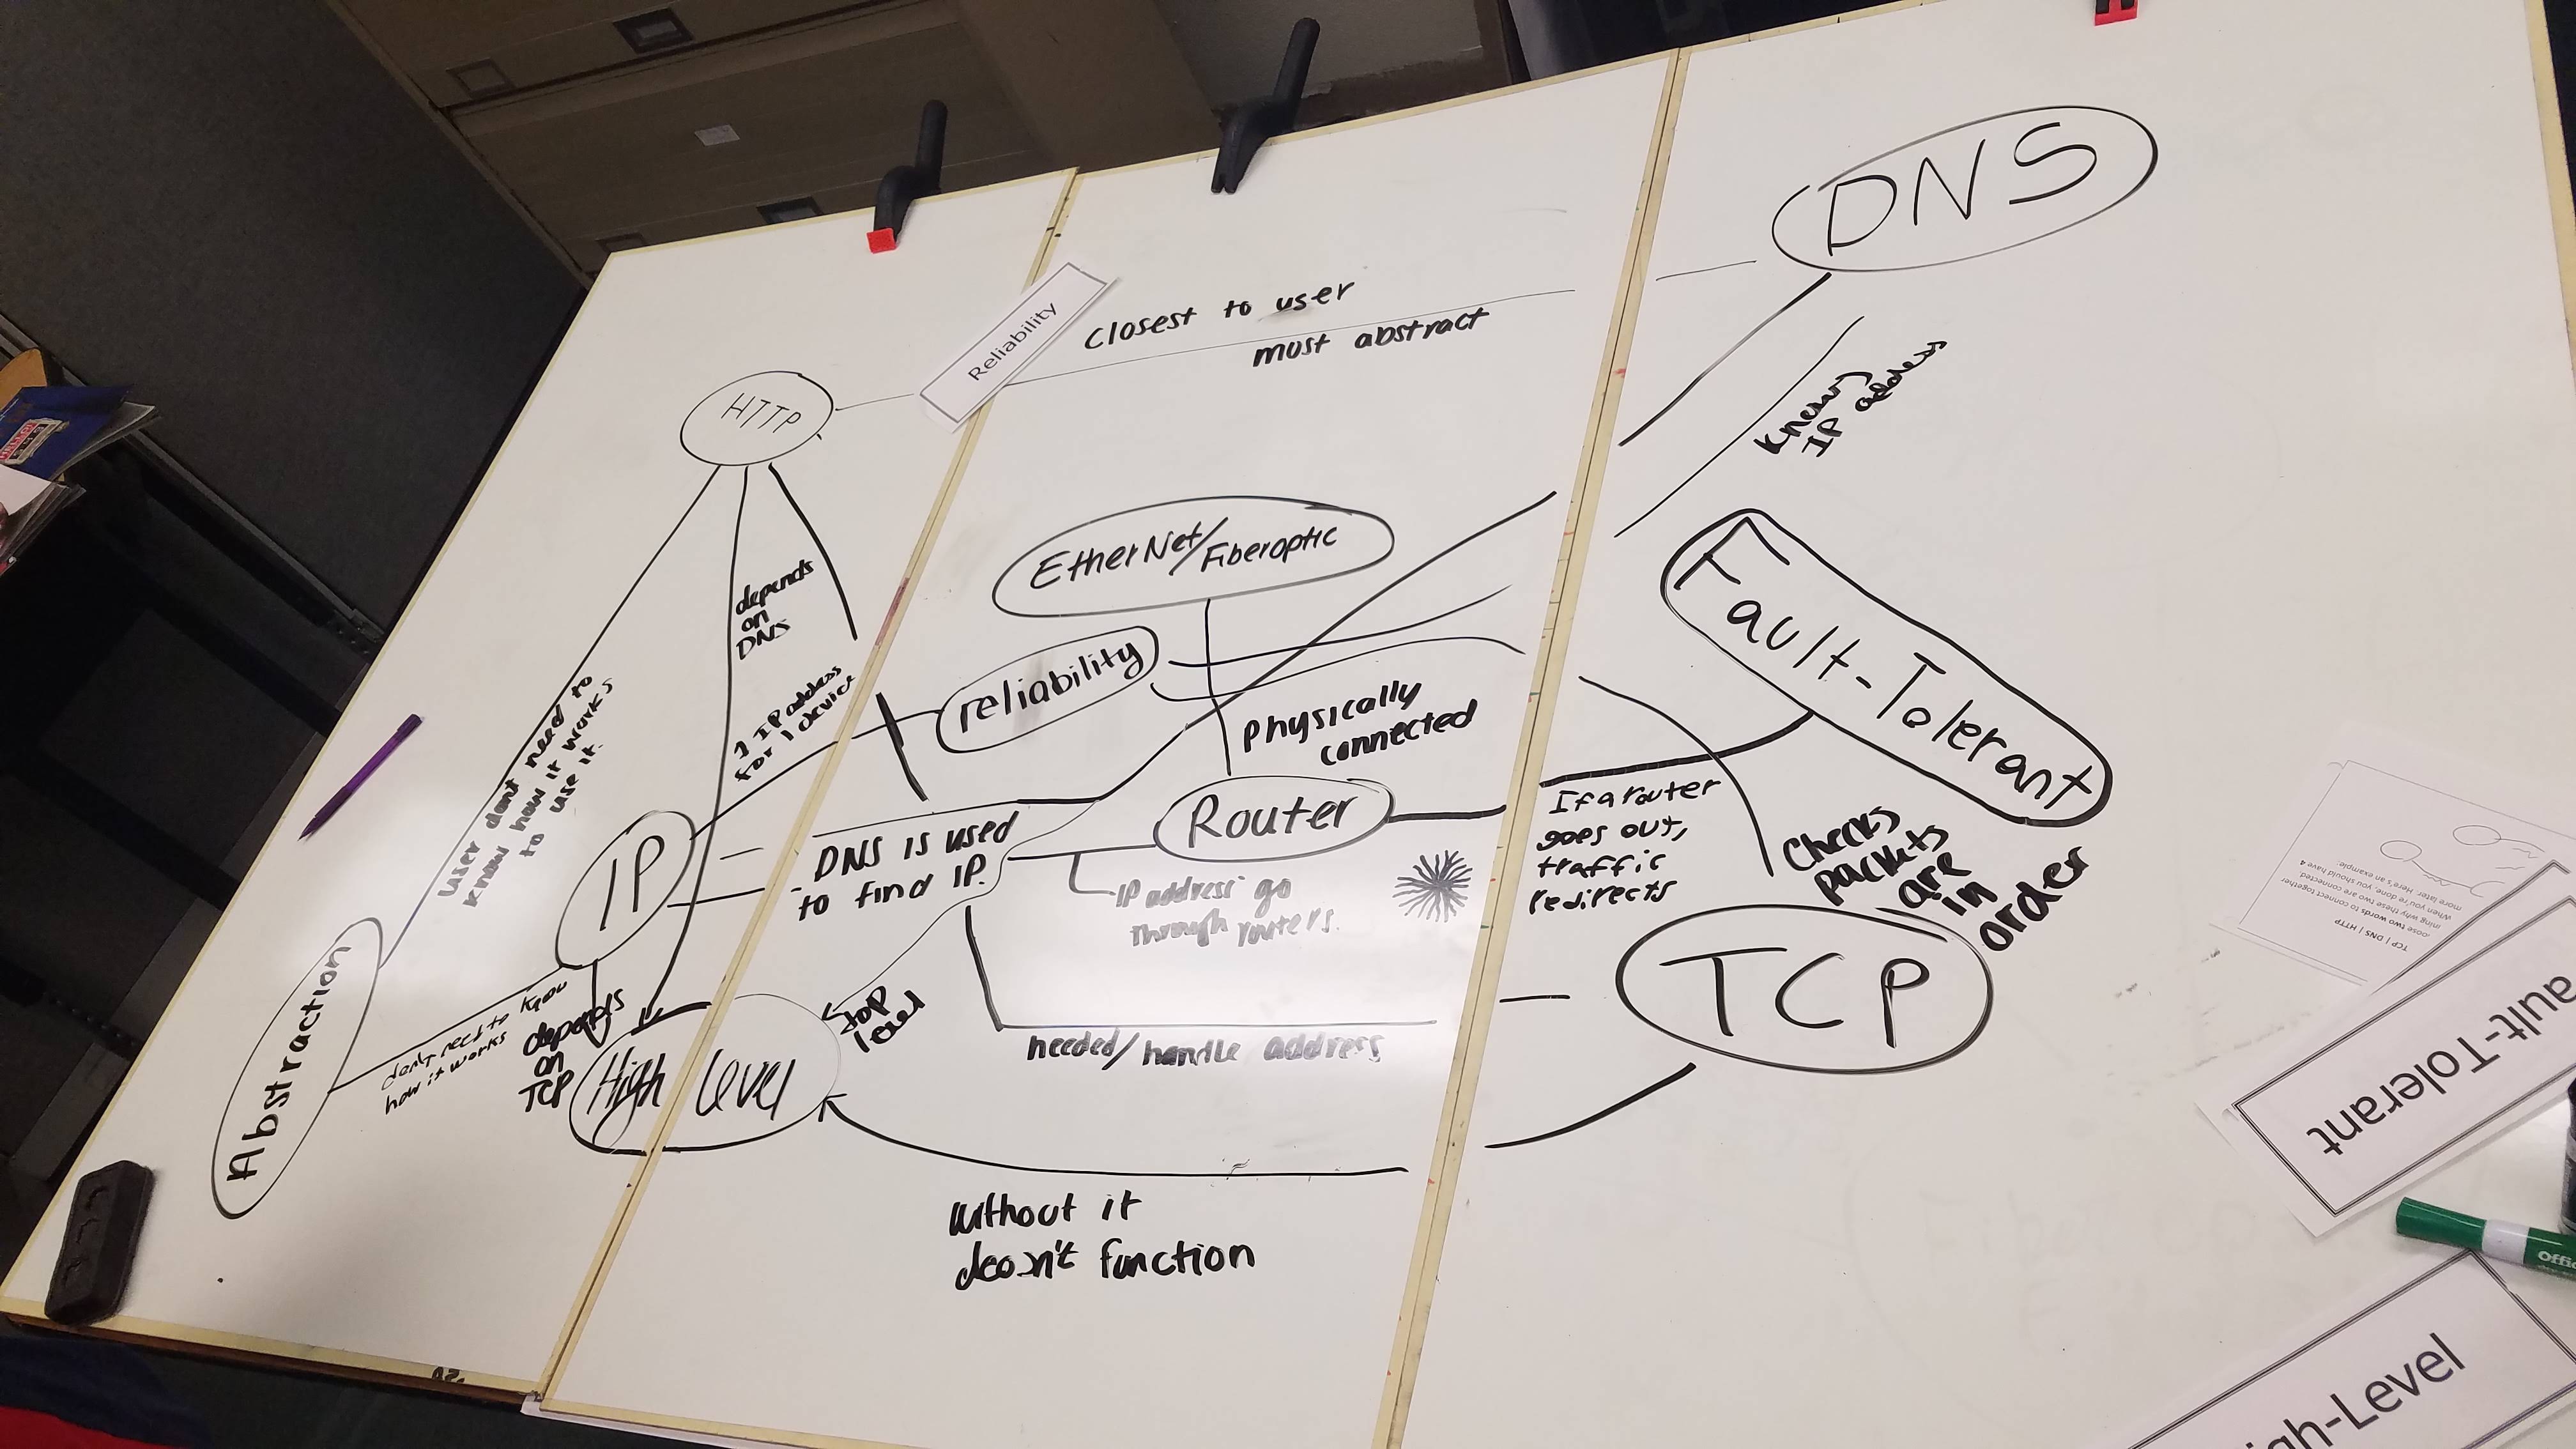 DNS
Closest to user
must abstract
Reliability
HTTP
knows
IP address
EtherNet/Fiberoptic
Fault-Tolerant
depends
on
DNS
reliability
1 IP address
for 1 device
physically
connected
user dont need to
know how it works
to use it.
IP
DNS is used
to find IP.
Router
IP address go
through routers.
If a router
goes out,
traffic
redirects
Checks
packets
are
in
order
TCP
Abstraction
dont need to know
how it works
depends
on
TCP
High level
top
level
needed/handle address
without it
doesn't function
TCP | DNS | HTTP
two words to connect together
ining why these two are connected.
When you're done, you should have 4
more later. Here's an example:
ault-Tolerant
igh-Level
Offic